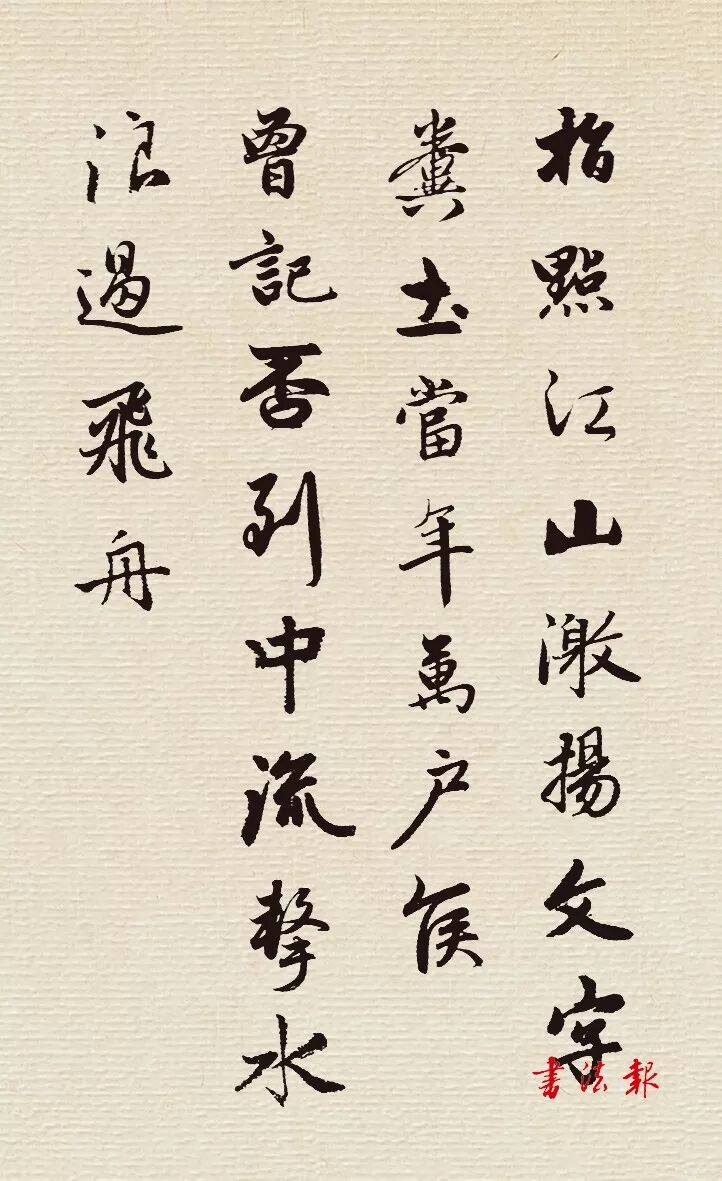 指點江山激揚文字
糞土當年萬户侯
曾記否到中流擊水
浪遏飛舟
書法報